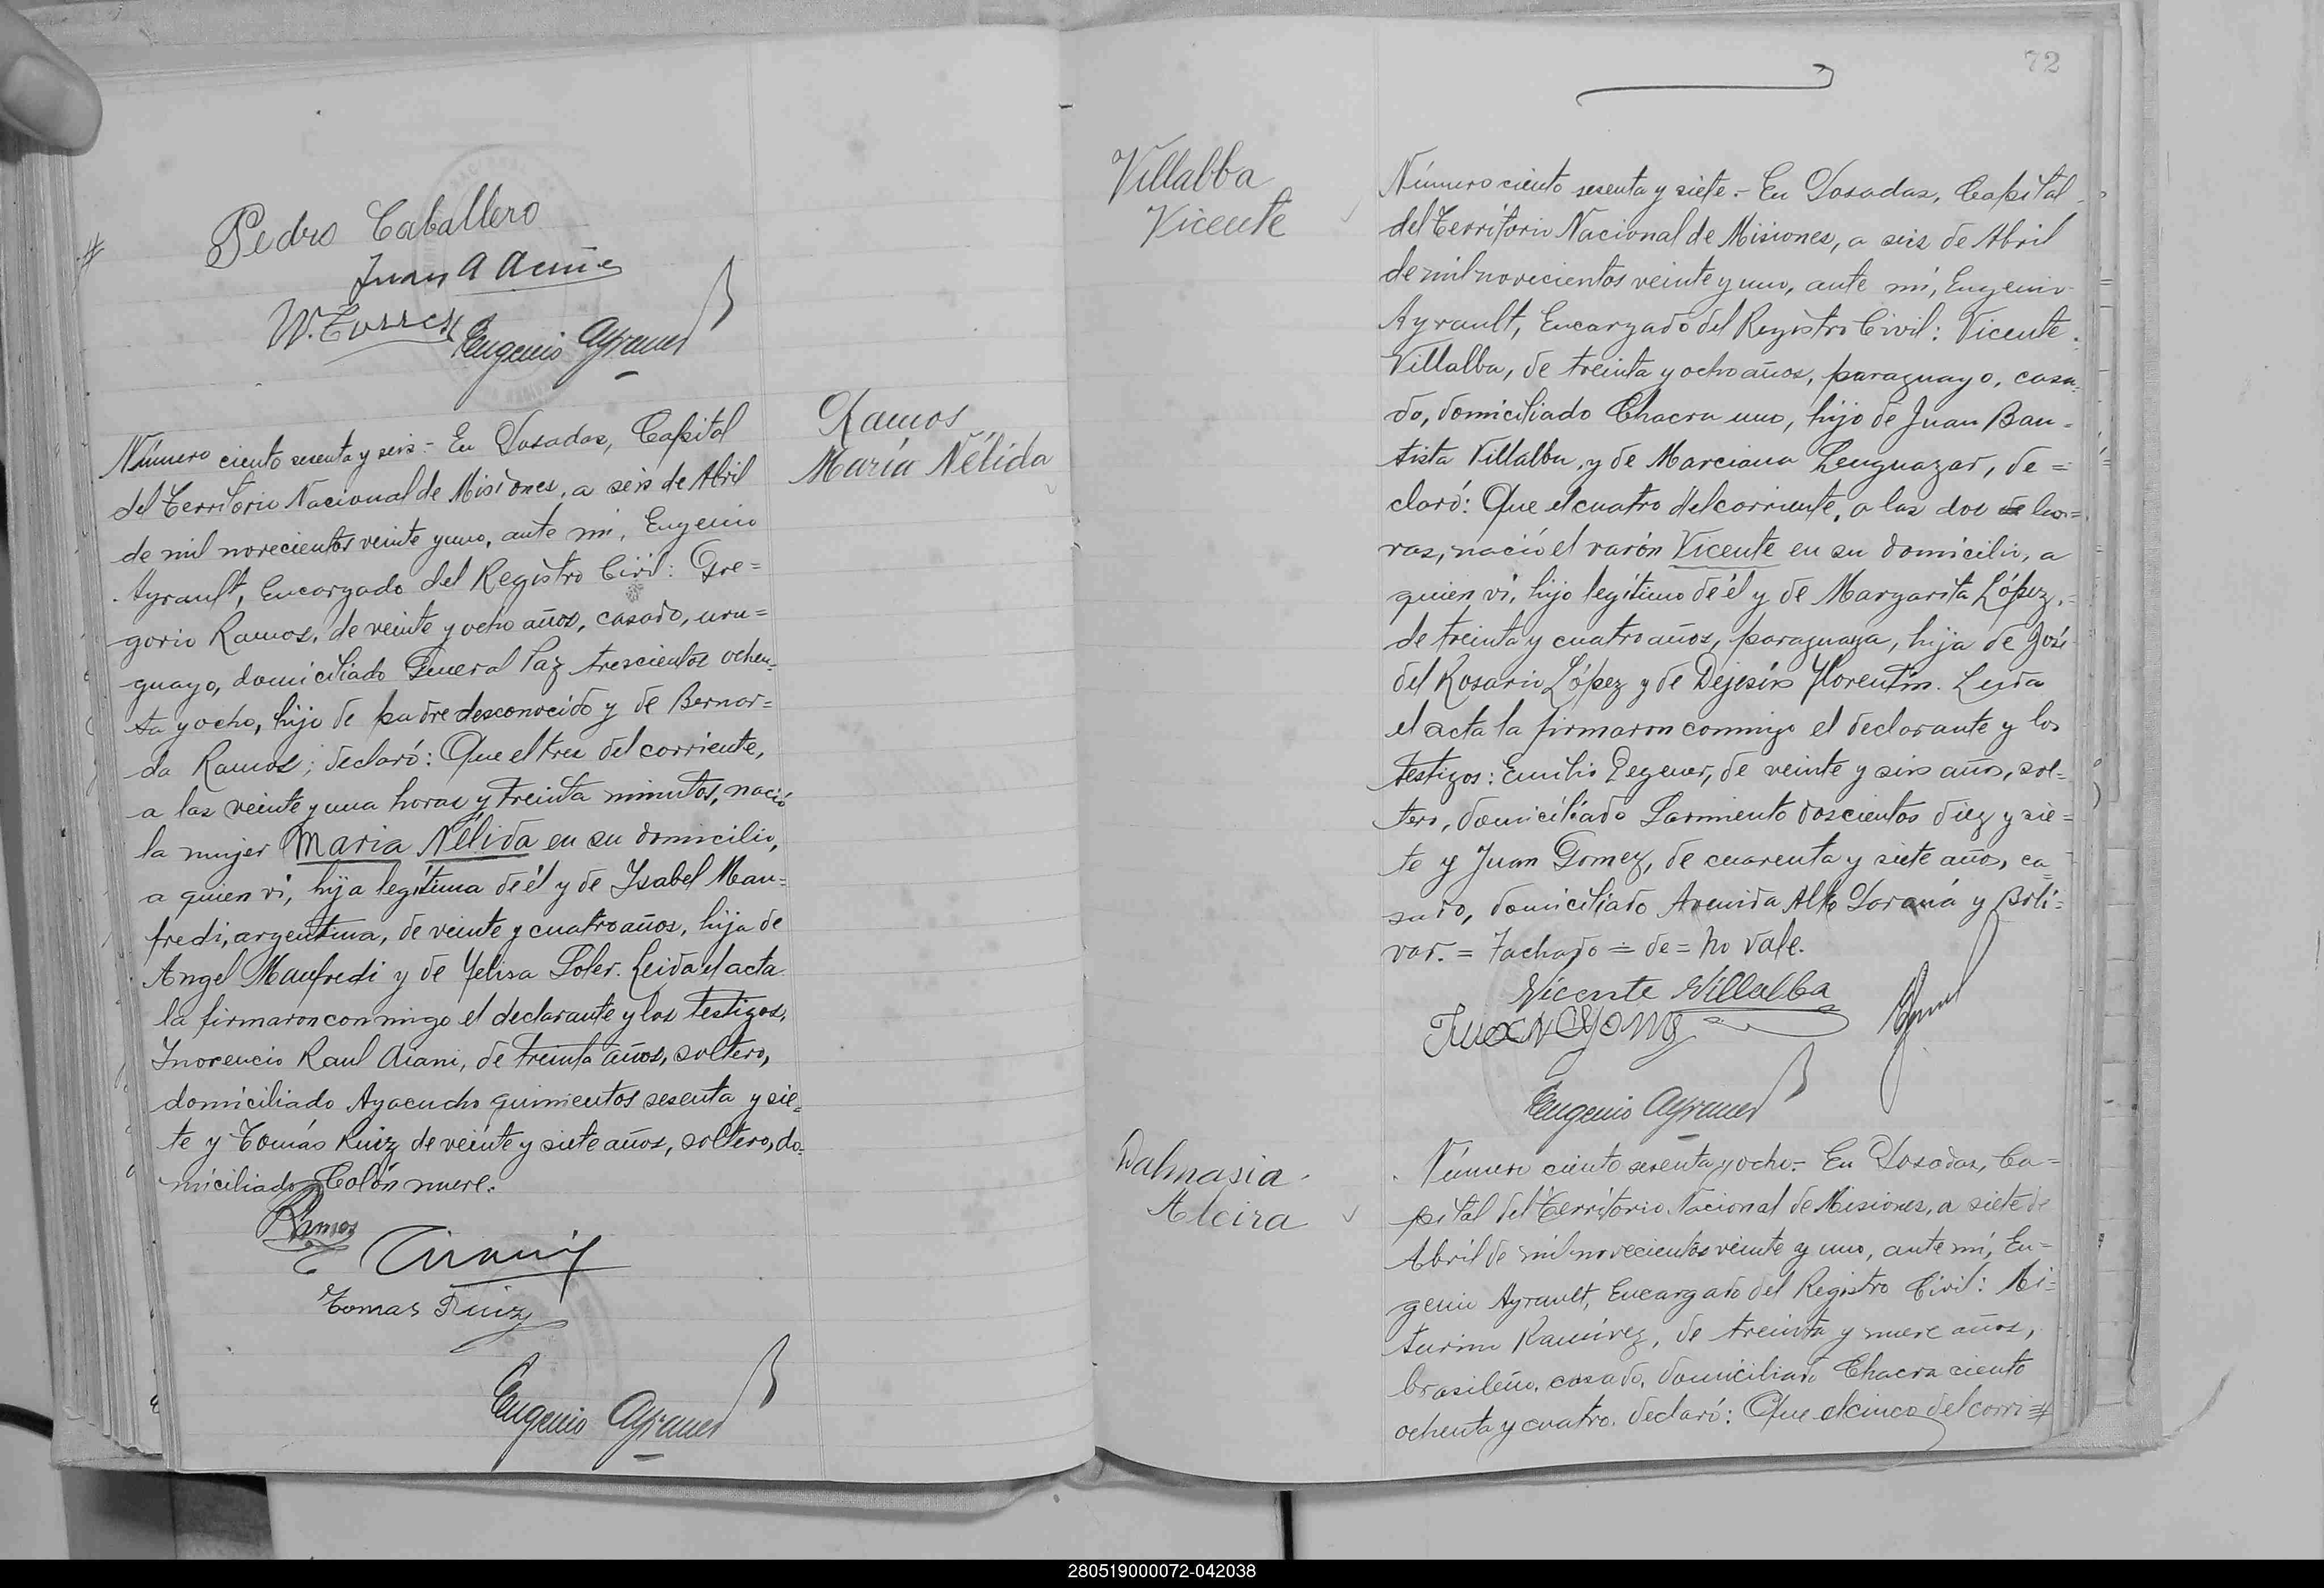 Pedro Caballero
Juan A Acuña
W. Torres
Eugenio Ayrault
Número ciento sesenta y seis - En Posadas, Capital
del Territorio Nacional de Misiones, a seis de Abril
de mil novecientos veinte y uno, ante mi, Eugenio
Ayrault, Encargado del Registro Civil: Gre=
gorio Ramos, de veinte y ocho años, casado, uru=
guayo, domiciliado General Paz trescientos ochen=
ta y ocho, hijo de padre desconocido y de Bernar=
da Ramos; declaró: Que el tres del corriente,
a las veinte y una horas y treinta minutos, nació
la mujer Maria Nélida en su domicilio,
a quien vi, hija legítima de él y de Ysabel Man=
fredi, argentina, de veinte y cuatro años, hija de
Angel Manfredi y de Felisa Soler. Leida el acta
la firmaron conmigo el declarante y los testigos,
Inocencio Raul Aiani, de treinta años, soltero,
domiciliado Ayacucho quinientos sesenta y sie=
te y Tomás Ruiz de veinte y siete años, soltero, do=
miciliado Colón nueve.
Ramos
Tomas Ruiz
Eugenio Ayrault
Ramos
María Nélida
72
Villalba
Vicente
Número ciento sesenta y siete.- En Posadas, Capital
del Territorio Nacional de Misiones, a seis de Abril
de mil novecientos veinte y uno, ante mí, Eugenio
Ayrault, Encargado del Registro Civil: Vicente
Villalba, de treinta y ocho años, paraguayo, casa=
do, domiciliado Chacra uno, hijo de Juan Bau=
tista Villalba, y de Marciana Lenguazar, de=
claró: Que el cuatro del corriente, a las dos de ho=
ras, nació el varón Vicente en su domicilio, a
quien vi, hijo legítimo de él y de Margarita López,
de treinta y cuatro años, paraguaya, hija de José
del Rosario López y de Dejesús Florentín. Leida
el acta la firmaron conmigo el declarante y los
testigos: Emilio Pegener, de veinte y seis años, sol=
tero, domiciliado Sarmiento doscientos diez y sie=
te y Juan Gomez, de cuarenta y siete años, ca=
sado, domiciliado Avenida Alto Paraná y Bolí=
var. = Tachado = de = No vale.
Vicente Villalba
Juan Gomez
Eugenio Ayrault
Dalmasia
Alcira
Número ciento sesenta y ocho.- En Posadas, Ca=
pital del Territorio Nacional de Misiones, a siete de
Abril de mil novecientos veinte y uno, ante mí, Eu=
genio Ayrault, Encargado del Registro Civil: Ai=
turino Ramírez, de treinta y nueve años,
brasileño, casado, domiciliado Chacra ciento
ochenta y cuatro, declaró: Que el cinco del corri=#
280519000072-042038